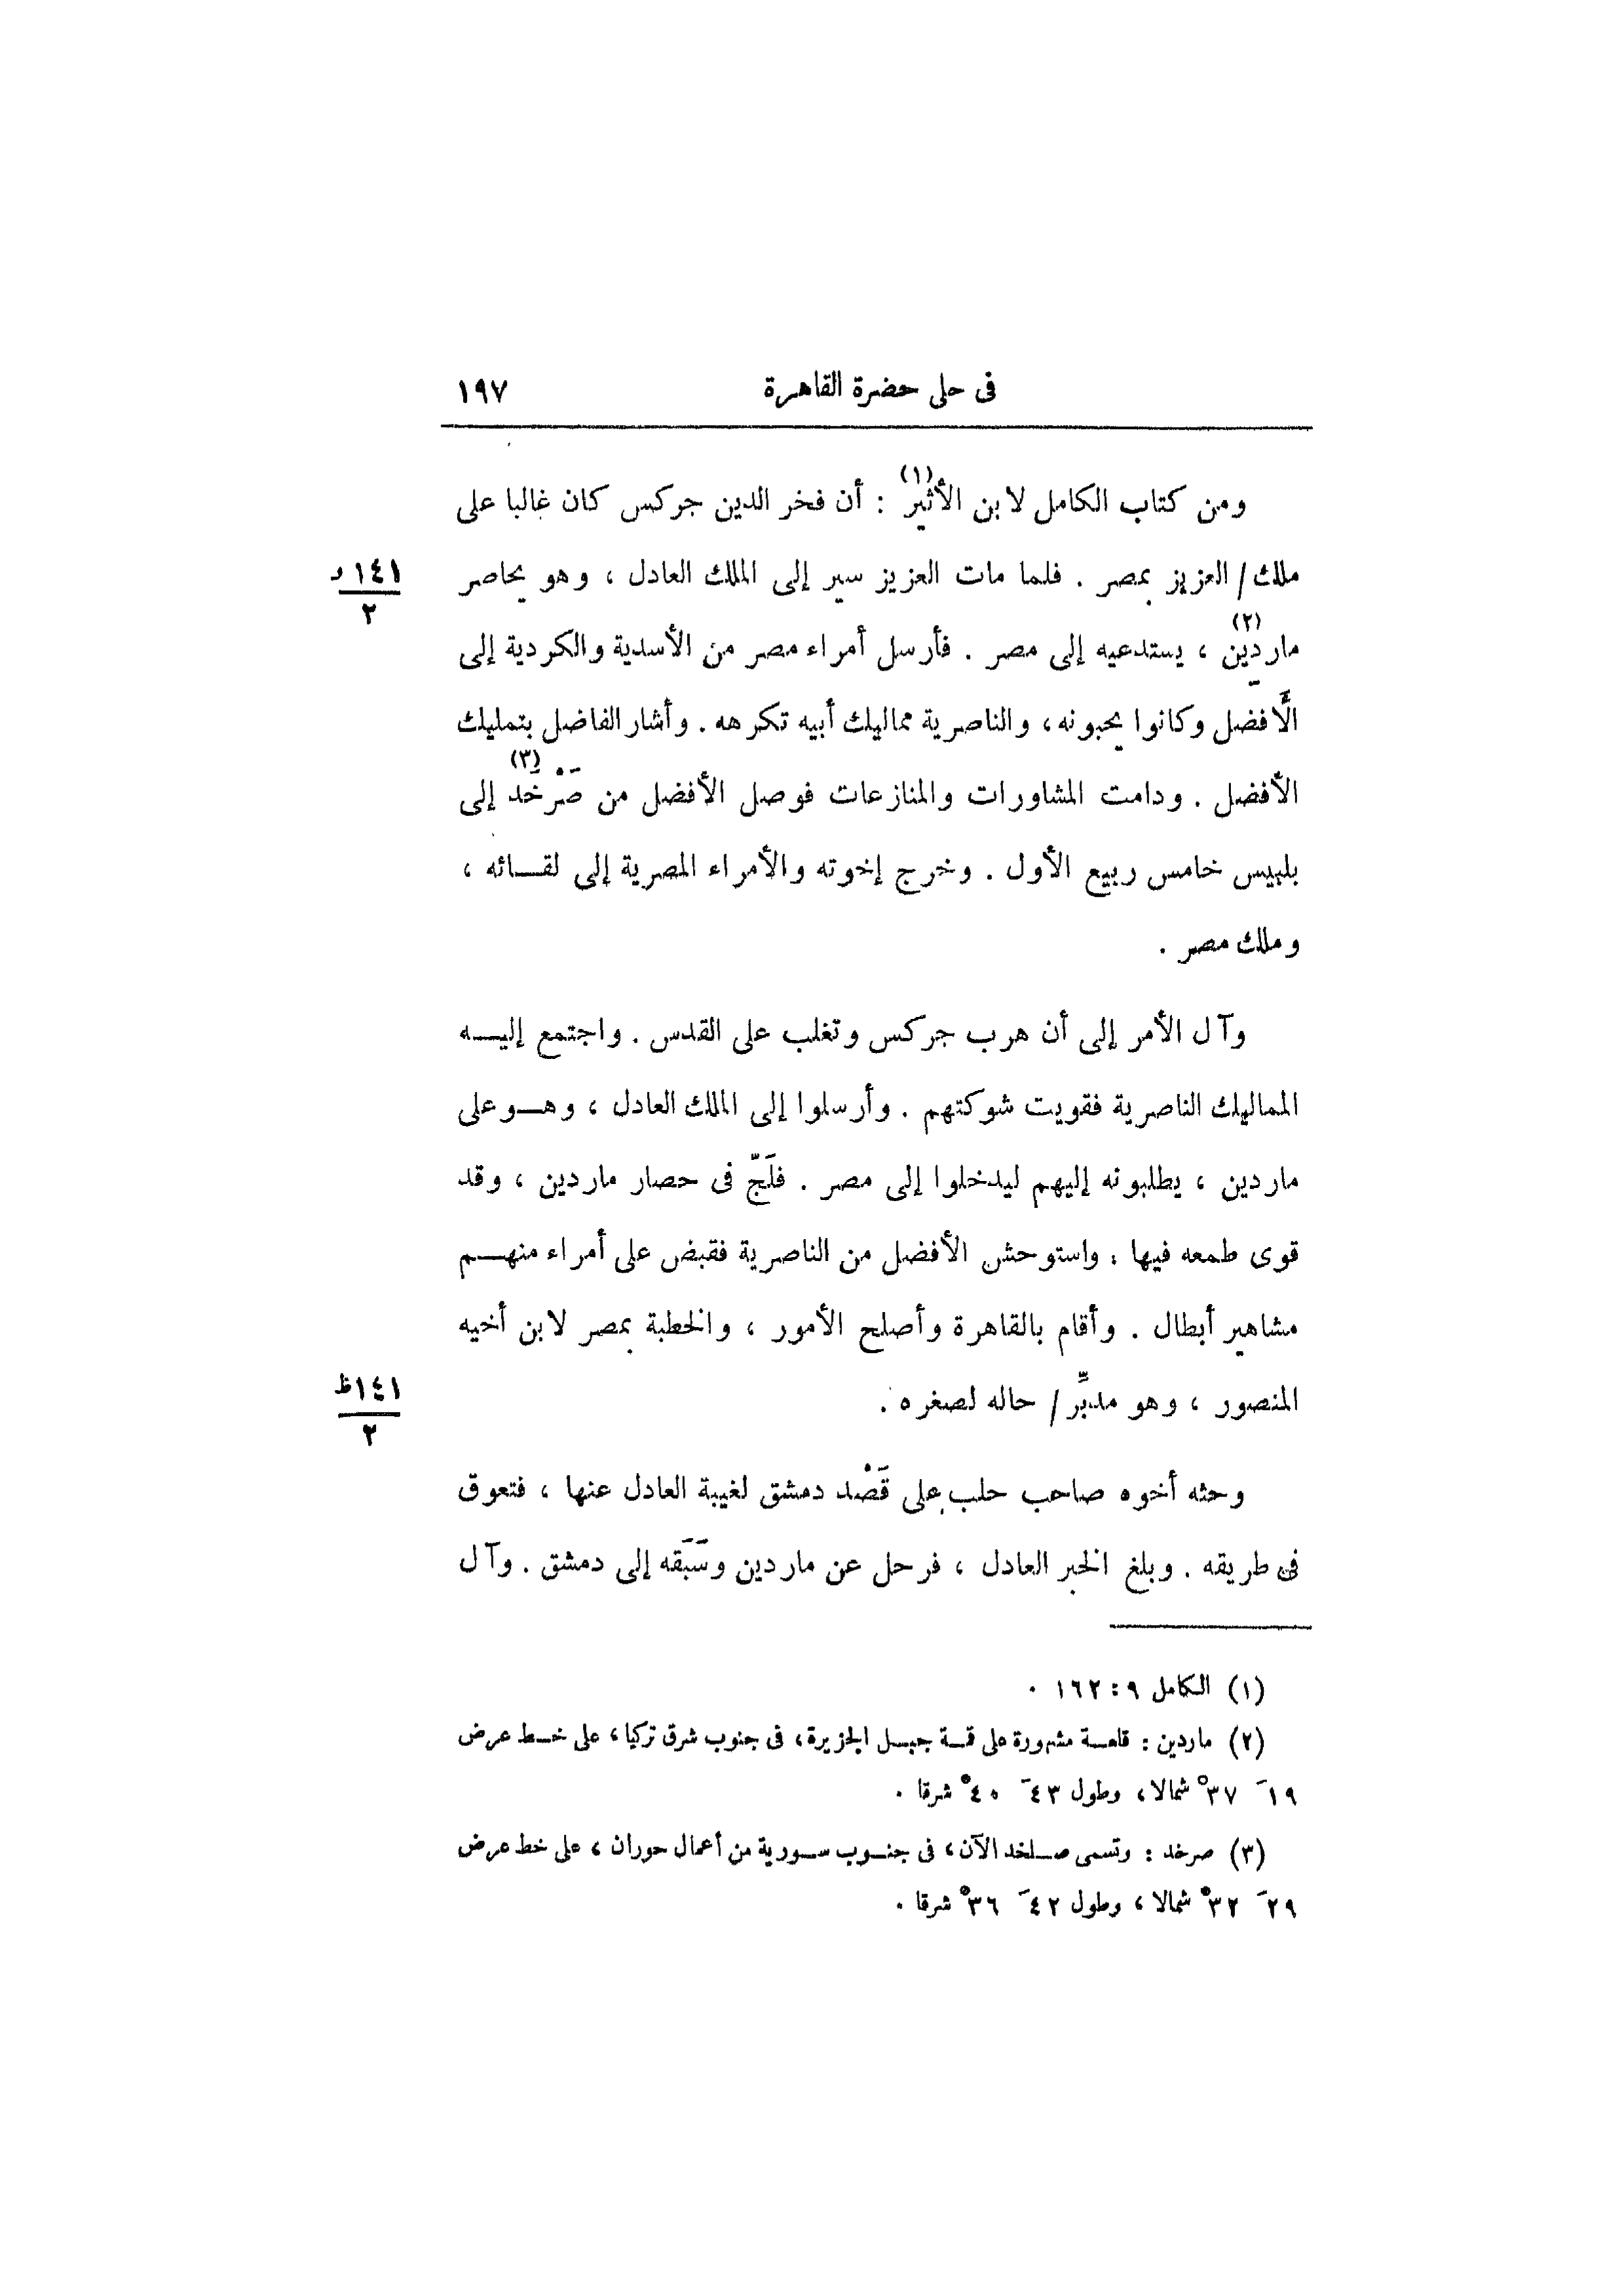 فى حلى حضرة القاهرة ١٩٧
ومن كتاب الكامل لابن الأثير (١) : أن فخر الدين جركس كان غالبا على
ملك / العزيز بمصر . فلما مات العزيز سير إلى الملك العادل ، وهو يحاصر
١٤١ و
٢
ماردين (٢) ، يستدعيه إلى مصر . فأرسل أمراء مصر من الأسدية والكردية إلى
الأفضل وكانوا يحبونه ، والناصرية مماليك أبيه تكرهه . وأشار الفاضل بتمليك
الأفضل . ودامت المشاورات والمنازعات فوصل الأفضل من صَرْخَد (٣) إلى
بلبيس خامس ربيع الأول . وخرج إخوته والأمراء المصرية إلى لقـــائه ،
وملك مصر .
وآل الأمر إلى أن هرب جركس وتغلب على القدس . واجتمع إليـــه
المماليك الناصرية فقويت شوكتهم . وأرسلوا إلى الملك العادل ، وهـــو على
ماردين ، يطلبونه إليهم ليدخلوا إلى مصر . فَلَجّ فى حصار ماردين ، وقد
قوى طمعه فيها ؛ واستوحش الأفضل من الناصرية فقبض على أمراء منهـــم
مشاهير أبطال . وأقام بالقاهرة وأصلح الأمور ، والخطبة بمصر لابن أخيه
المنصور ، وهو مدبِّر / حاله لصغره .
١٤١ ظ
٢
وحثه أخوه صاحب حلب على قَصْد دمشق لغيبة العادل عنها ، فتعوق
فى طريقه . وبلغ الخبر العادل ، فرحل عن ماردين وسَبَقه إلى دمشق . وآل
(١) الكامل ٩ : ١٦٢ .
(٢) ماردين : قلعـة مشهورة على قمـة جبـل الجزيرة ، فى جنوب شرق تركيا ، على خـط عرض
١٩َ ٣٧° شمالا ، وطول ٤٣َ ٤٠° شرقا .
(٣) صرخد : وتسمى صـلخد الآن ، فى جنـوب سـورية من أعمال حوران ، على خط عرض
٢٩َ ٣٢° شمالا ، وطول ٤٢َ ٣٦° شرقا .